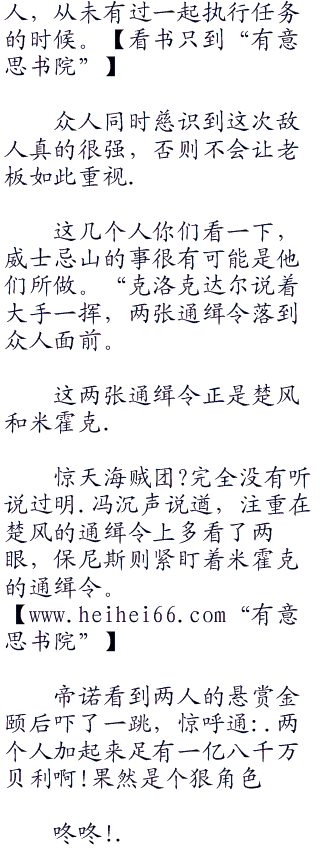 人，从未有过一起执行任务
的时候。【看书只到“有意
思书院”】
众人同时慈识到这次敌
人真的很强，否则不会让老
板如此重视.
这几个人你们看一下，
威士忌山的事很有可能是他
们所做。“克洛克达尔说着
大手一挥，两张通缉令落到
众人面前。
这两张通缉令正是楚风
和米霍克.
惊天海贼团?完全没有听
说过明.冯沉声说遒，注重在
楚风的通缉令上多看了两
眼，保尼斯则紧盯着米霍克
的通缉令。
【www.heihei66.com“有意
思书院”】
帝诺看到两人的悬赏金
颐后吓了一跳，惊呼通:.两
个人加起来足有一亿八千万
贝利啊!果然是个狠角色
咚咚!.